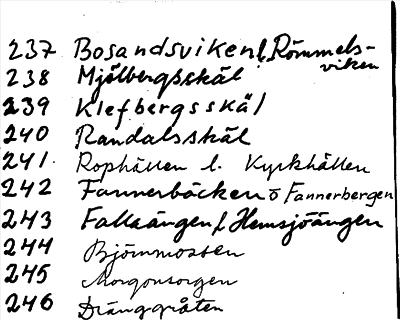 237 Bosandsviken l. Römmels-
viken
238 Mjölbergsskäl
239 Klefbergsskäl
240 Randalsskäl
241. Rophällen l. Kyrkhällen
242 Fannerbäcken o Fannerbergen
243 Fallaängen l. Hemsjöängen
244 Björnmossen
245 Morgonsorgen
246 Dränggråten